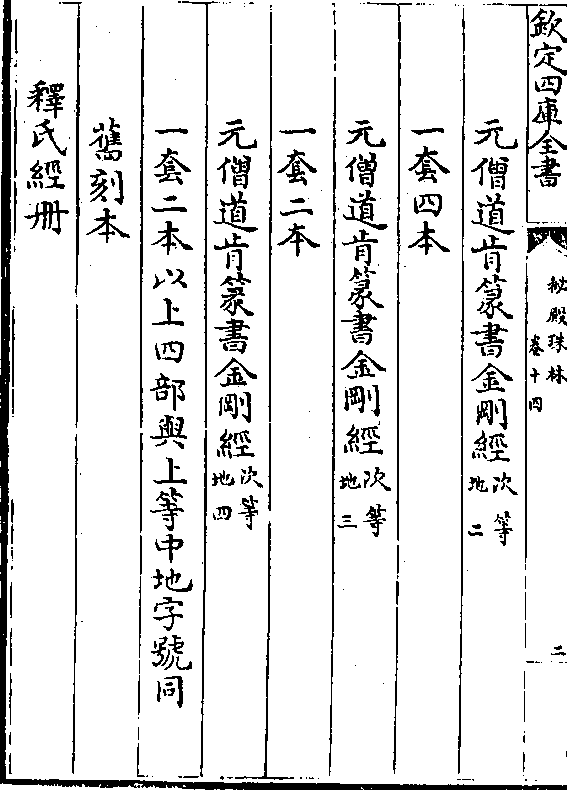 欽定四庫全書
秘殿珠林
卷十四
二
元僧道肯篆書金剛經次等地二
一套四本
元僧道肯篆書金剛經次等地三
一套二本
元僧道肯篆書金剛經次等地四
一套二本以上四部與上等中地字號同
舊刻本
釋氏經册